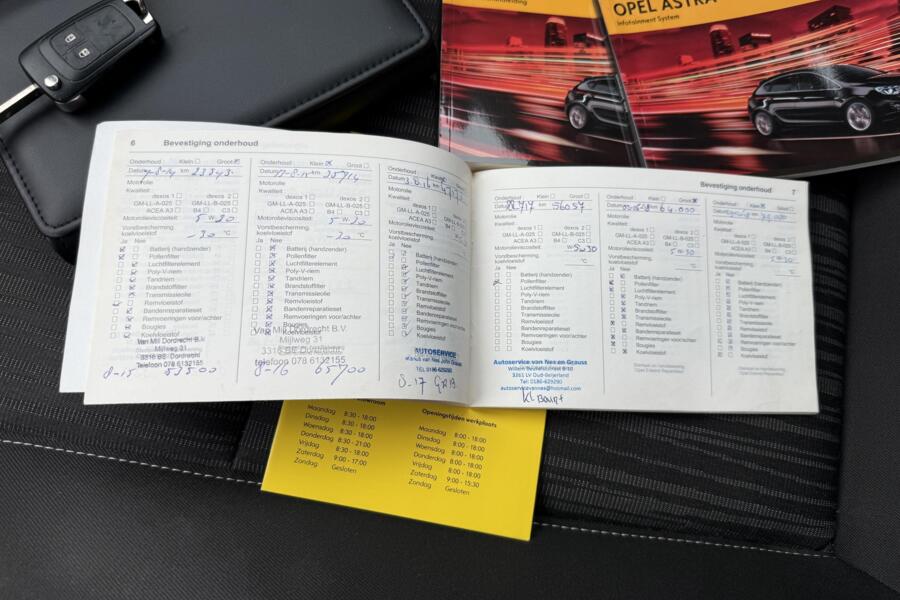 OPEL ASTRA
Infotainment System
6 Bevestiging onderhoud
Onderhoud: Klein Groot
Datum km 23843
Motorolie
Kwaliteit:
dexos 1 dexos 2
GM-LL-A-025 GM-LL-B-025
ACEA A3 B4 C3
Motorviscositeit: 5 W 30
Vorstbescherming,
koelvloeistof -30 °C
Ja Nee
Batterij (handzender)
Pollenfilter
Luchtfilterelement
Poly-V-riem
Tandriem
Brandstoffilter
Transmissieolie
Remvloeistof
Bandenreparatieset
Remvoeringen voor/achter
Bougies
Koelvloeistof
Van Mill Dordrecht B.V.
Mijlweg 31
3316 BE Dordrecht
Telefoon 078 6132155
8-15 53500
Onderhoud: Klein Groot
Datum km 35714
Motorolie
Kwaliteit:
dexos 1 dexos 2
GM-LL-A-025 GM-LL-B-025
ACEA A3 B4 C3
Motorviscositeit: 5 W 30
Vorstbescherming,
koelvloeistof °C
Ja Nee
Batterij (handzender)
Pollenfilter
Luchtfilterelement
Poly-V-riem
Tandriem
Brandstoffilter
Transmissieolie
Remvloeistof
Bandenreparatieset
Remvoeringen voor/achter
Bougies
Koelvloeistof
Van Mill Dordrecht B.V.
Mijlweg 31
3316 BE Dordrecht
Telefoon 078 6132155
8-16 65700
Onderhoud: Klein Groot
Datum km
Motorolie
Kwaliteit:
dexos 1
GM-LL-A-025
ACEA A3
Motorviscositeit:
Vorstbescherming,
koelvloeistof
Ja Nee
Batterij (handzender)
Pollenfilter
Luchtfilterelement
Poly-V-riem
Tandriem
Brandstoffilter
Transmissieolie
Remvloeistof
Bandenreparatieset
Remvoeringen voor/achter
Bougies
Koelvloeistof
AUTOSERVICE
8-17
Bevestiging onderhoud 7
Onderhoud: Klein Groot
Datum km 56057
Motorolie
Kwaliteit:
dexos 1 dexos 2
GM-LL-A-025 GM-LL-B-025
ACEA A3 B4 C3
Motorviscositeit: 5W30
Vorstbescherming,
koelvloeistof °C
Ja Nee
Batterij (handzender)
Pollenfilter
Luchtfilterelement
Poly-V-riem
Tandriem
Brandstoffilter
Transmissieolie
Remvloeistof
Bandenreparatieset
Remvoeringen voor/achter
Bougies
Koelvloeistof
Autoservice van Nes en Grauss
3261 LV Oud-Beijerland
Tel: 0186-629290
autoservicevannes@hotmail.com
Onderhoud: Klein Groot
Datum km 64.000
Motorolie
Kwaliteit:
dexos 1 dexos 2
GM-LL-A-025 GM-LL-B-025
ACEA A3 B4 C3
Motorviscositeit: 5W30
Vorstbescherming,
koelvloeistof °C
Ja Nee
Batterij (handzender)
Pollenfilter
Luchtfilterelement
Poly-V-riem
Tandriem
Brandstoffilter
Transmissieolie
Remvloeistof
Bandenreparatieset
Remvoeringen voor/achter
Bougies
Koelvloeistof
Onderhoud: Klein Groot
Datum km
Motorolie
Kwaliteit:
dexos 1 dexos 2
GM-LL-A-025 GM-LL-B-025
ACEA A3 B4 C3
Motorviscositeit: 5W30
Vorstbescherming,
koelvloeistof °C
Ja Nee
Batterij (handzender)
Pollenfilter
Luchtfilterelement
Poly-V-riem
Tandriem
Brandstoffilter
Transmissieolie
Remvloeistof
Bandenreparatieset
Remvoeringen voor/achter
Bougies
Koelvloeistof
Maandag 8:30 - 18:00
Dinsdag 8:30 - 18:00
Woensdag 8:30 - 18:00
Donderdag 8:30 - 21:00
Vrijdag 8:30 - 18:00
Zaterdag 9:00 - 17:00
Zondag Gesloten
Openingstijden werkplaats
Maandag 8:00 - 18:00
Dinsdag 8:00 - 18:00
Woensdag 8:00 - 18:00
Donderdag 8:00 - 18:00
Vrijdag 8:00 - 18:00
Zaterdag 9:00 - 15:30
Zondag Gesloten